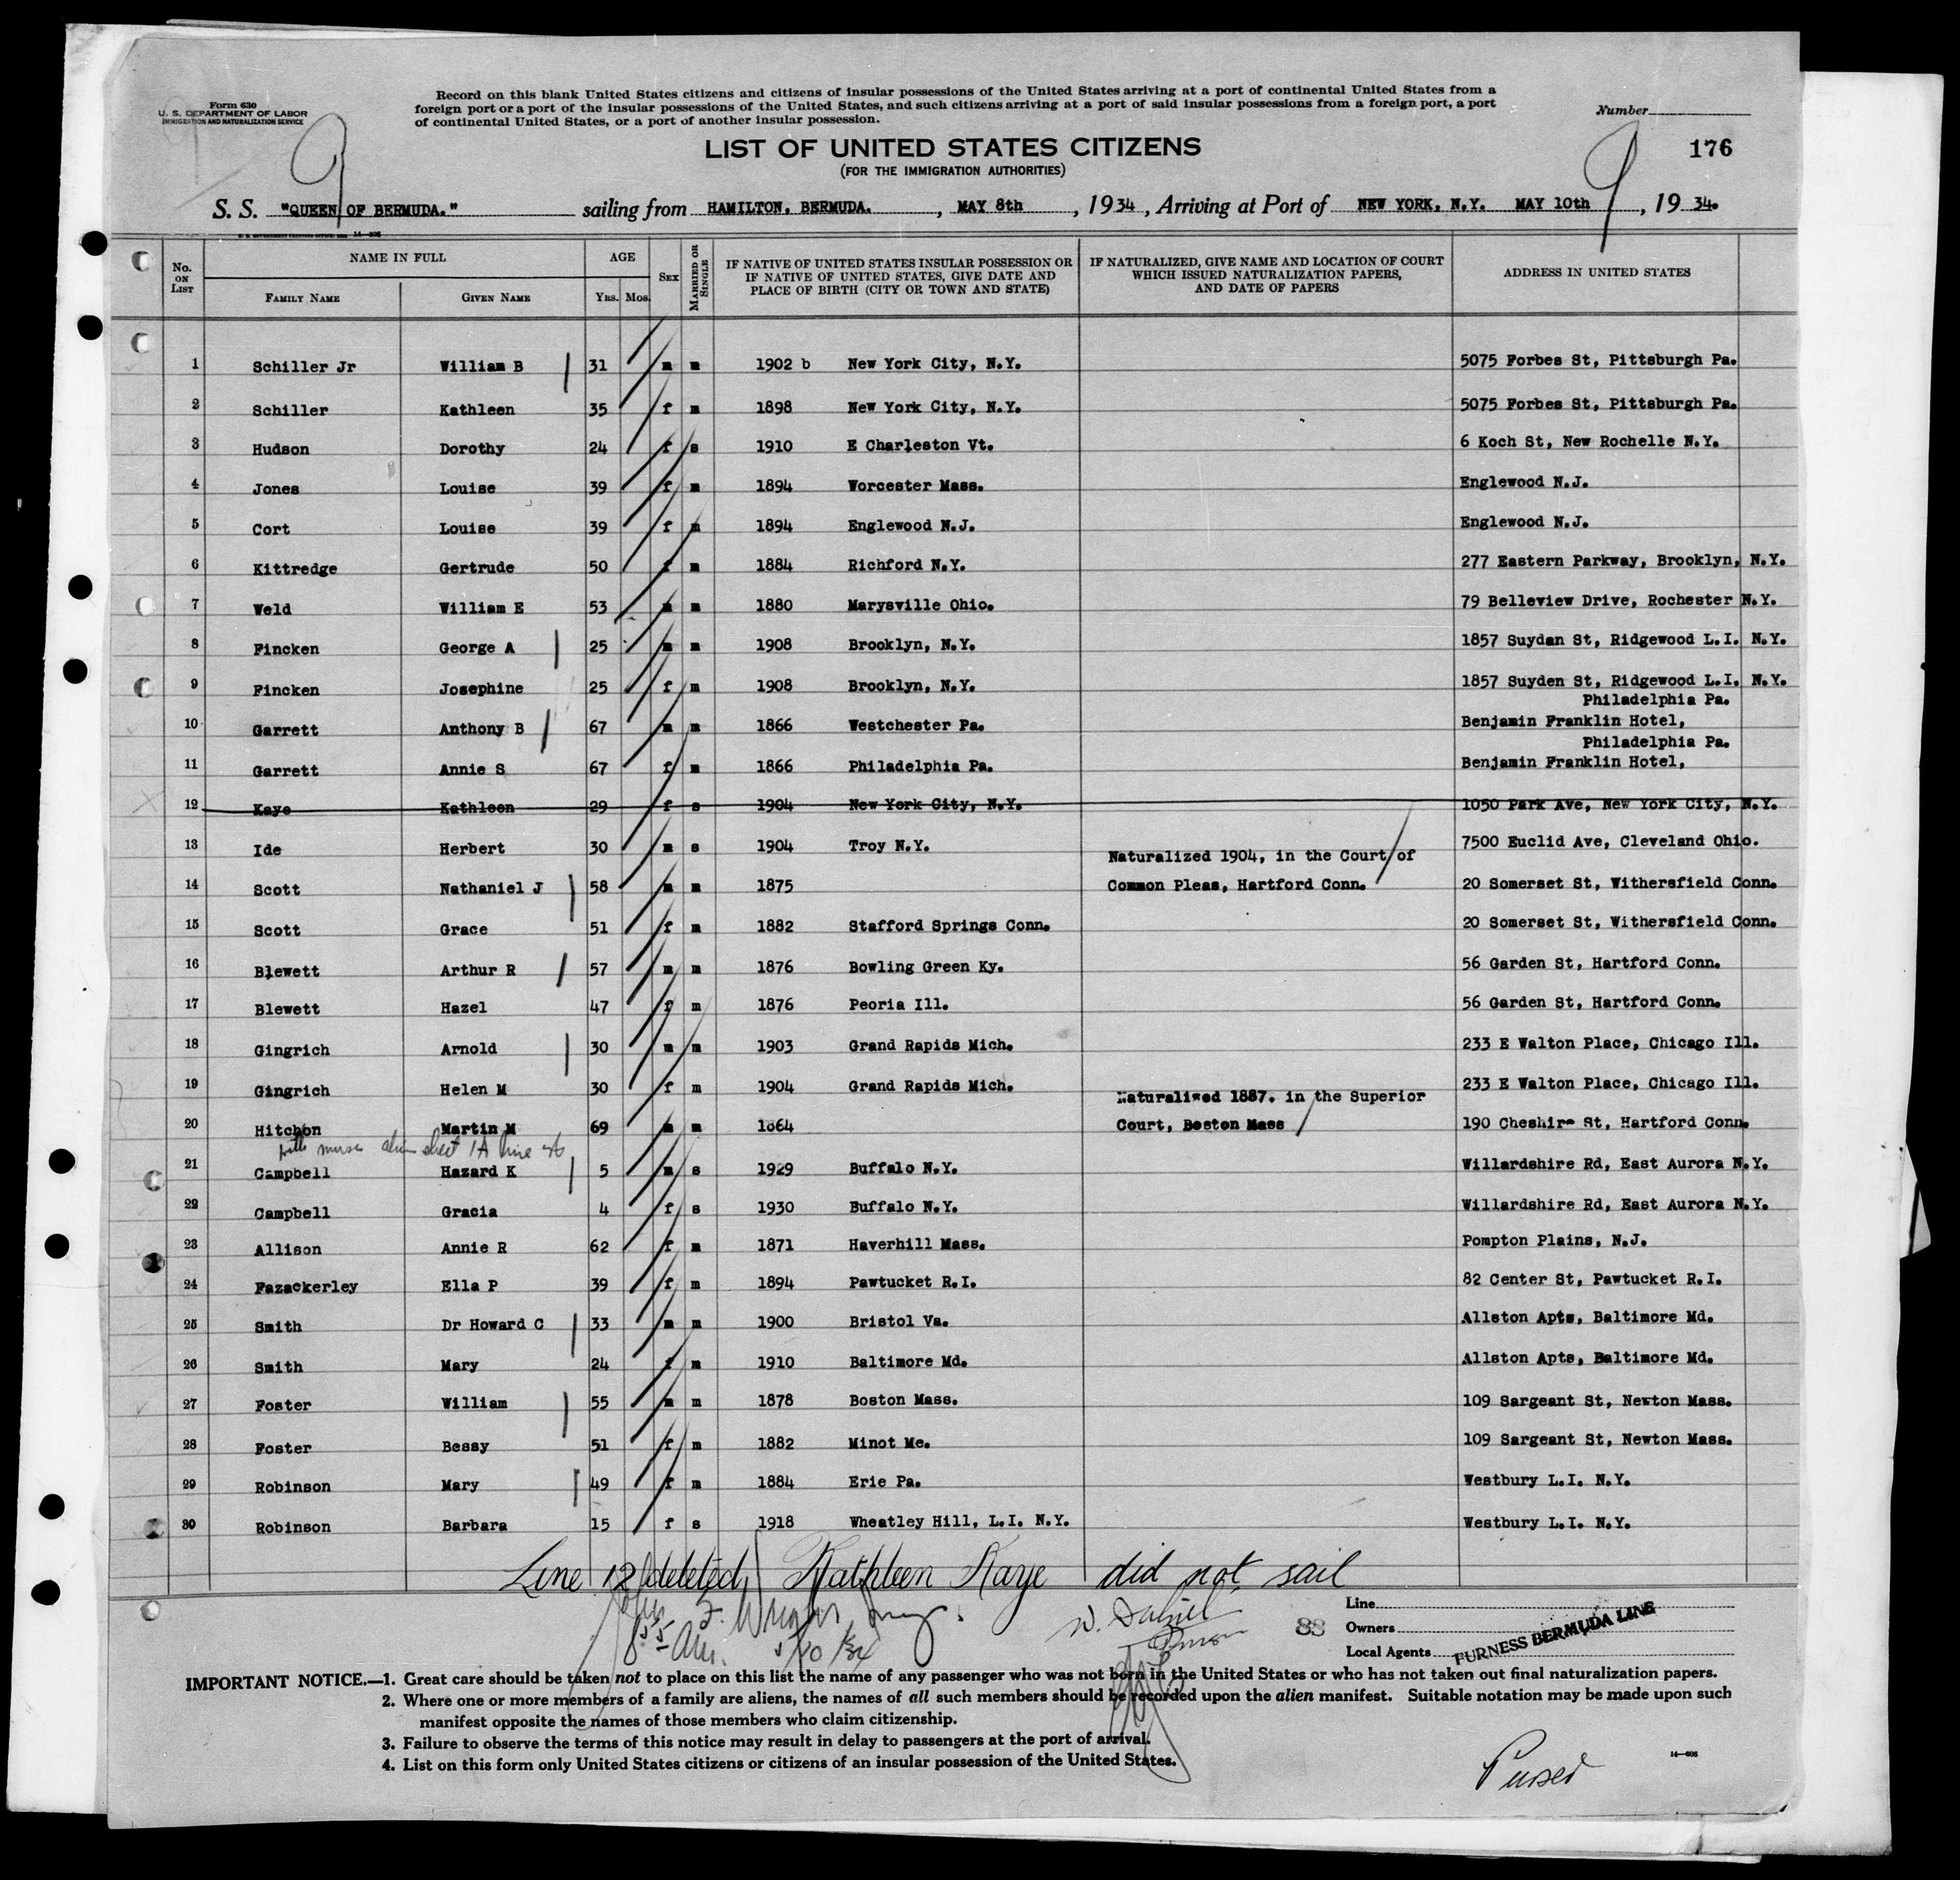 Form 630
U. S. DEPARTMENT OF LABOR
IMMIGRATION AND NATURALIZATION SERVICE
Record on this blank United States citizens and citizens of insular possessions of the United States arriving at a port of continental United States from a
foreign port or a port of the insular possessions of the United States, and such citizens arriving at a port of said insular possessions from a foreign port, a port
of continental United States, or a port of another insular possession.
Number
176
9
9
LIST OF UNITED STATES CITIZENS
(FOR THE IMMIGRATION AUTHORITIES)
S. S. "QUEEN OF BERMUDA." sailing from HAMILTON, BERMUDA. , MAY 8th , 1934 , Arriving at Port of NEW YORK, N.Y. MAY 10th , 19 34.
No. ON LIST NAME IN FULL FAMILY NAME GIVEN NAME AGE YRS. MOS. SEX MARRIED OR SINGLE IF NATIVE OF UNITED STATES INSULAR POSSESSION OR IF NATIVE OF UNITED STATES, GIVE DATE AND PLACE OF BIRTH (CITY OR TOWN AND STATE) IF NATURALIZED, GIVE NAME AND LOCATION OF COURT WHICH ISSUED NATURALIZATION PAPERS, AND DATE OF PAPERS ADDRESS IN UNITED STATES
1 Schiller Jr William B 31 m m 1902 b New York City, N.Y. 5075 Forbes St, Pittsburgh Pa.
2 Schiller Kathleen 35 f m 1898 New York City, N.Y. 5075 Forbes St, Pittsburgh Pa.
3 Hudson Dorothy 24 f s 1910 E Charleston Vt. 6 Koch St, New Rochelle N.Y.
4 Jones Louise 39 f m 1894 Worcester Mass. Englewood N.J.
5 Cort Louise 39 f m 1894 Englewood N.J. Englewood N.J.
6 Kittredge Gertrude 50 f m 1884 Richford N.Y. 277 Eastern Parkway, Brooklyn, N.Y.
7 Weld William E 53 m m 1880 Marysville Ohio. 79 Belleview Drive, Rochester N.Y.
8 Fincken George A 25 m m 1908 Brooklyn, N.Y. 1857 Suydan St, Ridgewood L.I. N.Y.
9 Fincken Josephine 25 f m 1908 Brooklyn, N.Y. 1857 Suyden St, Ridgewood L.I. N.Y.
Philadelphia Pa.
10 Garrett Anthony B 67 m m 1866 Westchester Pa. Benjamin Franklin Hotel,
Philadelphia Pa.
11 Garrett Annie S 67 f m 1866 Philadelphia Pa. Benjamin Franklin Hotel,
12 Kaye Kathleen 29 f s 1904 New York City, N.Y. 1050 Park Ave, New York City, N.Y.
13 Ide Herbert 30 m s 1904 Troy N.Y. 7500 Euclid Ave, Cleveland Ohio.
Naturalized 1904, in the Court of
14 Scott Nathaniel J 58 m m 1875 Common Pleas, Hartford Conn. 20 Somerset St, Withersfield Conn.
15 Scott Grace 51 f m 1882 Stafford Springs Conn. 20 Somerset St, Withersfield Conn.
16 Blewett Arthur R 57 m m 1876 Bowling Green Ky. 56 Garden St, Hartford Conn.
17 Blewett Hazel 47 f m 1876 Peoria Ill. 56 Garden St, Hartford Conn.
18 Gingrich Arnold 30 m m 1903 Grand Rapids Mich. 233 E Walton Place, Chicago Ill.
19 Gingrich Helen M 30 f m 1904 Grand Rapids Mich. 233 E Walton Place, Chicago Ill.
Naturalized 1887. in the Superior
20 Hitchon Martin M 69 m m 1864 Court, Boston Mass 190 Cheshire St, Hartford Conn.
with nurse alien sheet 1A line
21 Campbell Hazard K 5 m s 1929 Buffalo N.Y. Willardshire Rd, East Aurora N.Y.
22 Campbell Gracia 4 f s 1930 Buffalo N.Y. Willardshire Rd, East Aurora N.Y.
23 Allison Annie R 62 f m 1871 Haverhill Mass. Pompton Plains, N.J.
24 Fazackerley Ella P 39 f m 1894 Pawtucket R.I. 82 Center St, Pawtucket R.I.
25 Smith Dr Howard C 33 m m 1900 Bristol Va. Allston Apts, Baltimore Md.
26 Smith Mary 24 f m 1910 Baltimore Md. Allston Apts, Baltimore Md.
27 Foster William 55 m m 1878 Boston Mass. 109 Sargeant St, Newton Mass.
28 Foster Bessy 51 f m 1882 Minot Me. 109 Sargeant St, Newton Mass.
29 Robinson Mary 49 f m 1884 Erie Pa. Westbury L.I. N.Y.
30 Robinson Barbara 15 f s 1918 Wheatley Hill, L.I. N.Y. Westbury L.I. N.Y.
Line 12 deleted Kathleen Kaye did not sail
Line
88
Owners
Local Agents FURNESS BERMUDA LINE
5/10/34
IMPORTANT NOTICE.—1. Great care should be taken not to place on this list the name of any passenger who was not born in the United States or who has not taken out final naturalization papers.
2. Where one or more members of a family are aliens, the names of all such members should be recorded upon the alien manifest. Suitable notation may be made upon such
manifest opposite the names of those members who claim citizenship.
3. Failure to observe the terms of this notice may result in delay to passengers at the port of arrival.
4. List on this form only United States citizens or citizens of an insular possession of the United States.
14—606
Purser